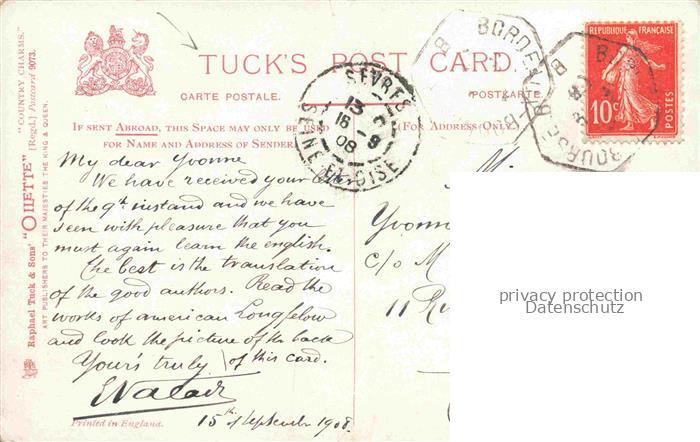 TUCK'S POST CARD.
CARTE POSTALE. POSTKARTE.
IF SENT ABROAD, THIS SPACE MAY ONLY BE USED
FOR NAME AND ADDRESS OF SENDER.
(FOR ADDRESS ONLY.)
"COUNTRY CHARMS."
[Regd.] Postcard 9073.
Raphael Tuck & Sons' "OILETTE"
ART PUBLISHERS TO THEIR MAJESTIES THE KING & QUEEN.
RÉPUBLIQUE FRANÇAISE
10c
POSTES
SEVRES
13
16 - 9
08
SEINE ET OISE
BORDEAUX
BOURSE
My dear Yvonne
We have received your letter
of the 9th instand and we have
seen with pleasure that you
must again learn the english.
The best is the translation
of the good authors. Read the
works of american Longfelow
and look the picture of the back
Yours truly of this card.
15th September 1908
Printed in England.
Yvonne
c/o M
11 Ru
privacy protection
Datenschutz